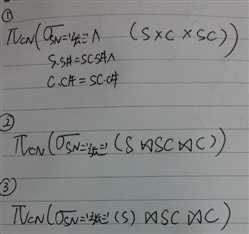 ①
π_CN(σ_SN='张三' ∧ (S×C×SC)
S.S#=SC.S# ∧
C.C#=SC.C#
②
π_CN(σ_SN='张三'(S⋈SC⋈C))
③
π_CN(σ_SN='张三'(S)⋈SC⋈C)